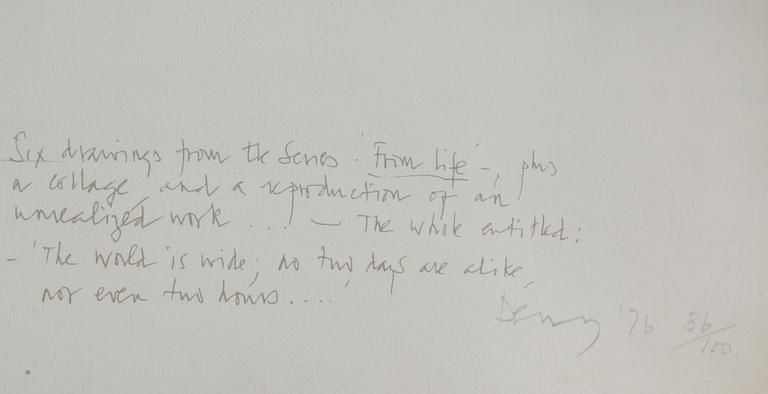 Six drawings from the Series 'From life' -, plus
a collage, and a reproduction of an
unrealized work ... — The whole entitled:
- 'The world is wide; no two days are alike,
nor even two hours....'
Denny '76 86/100